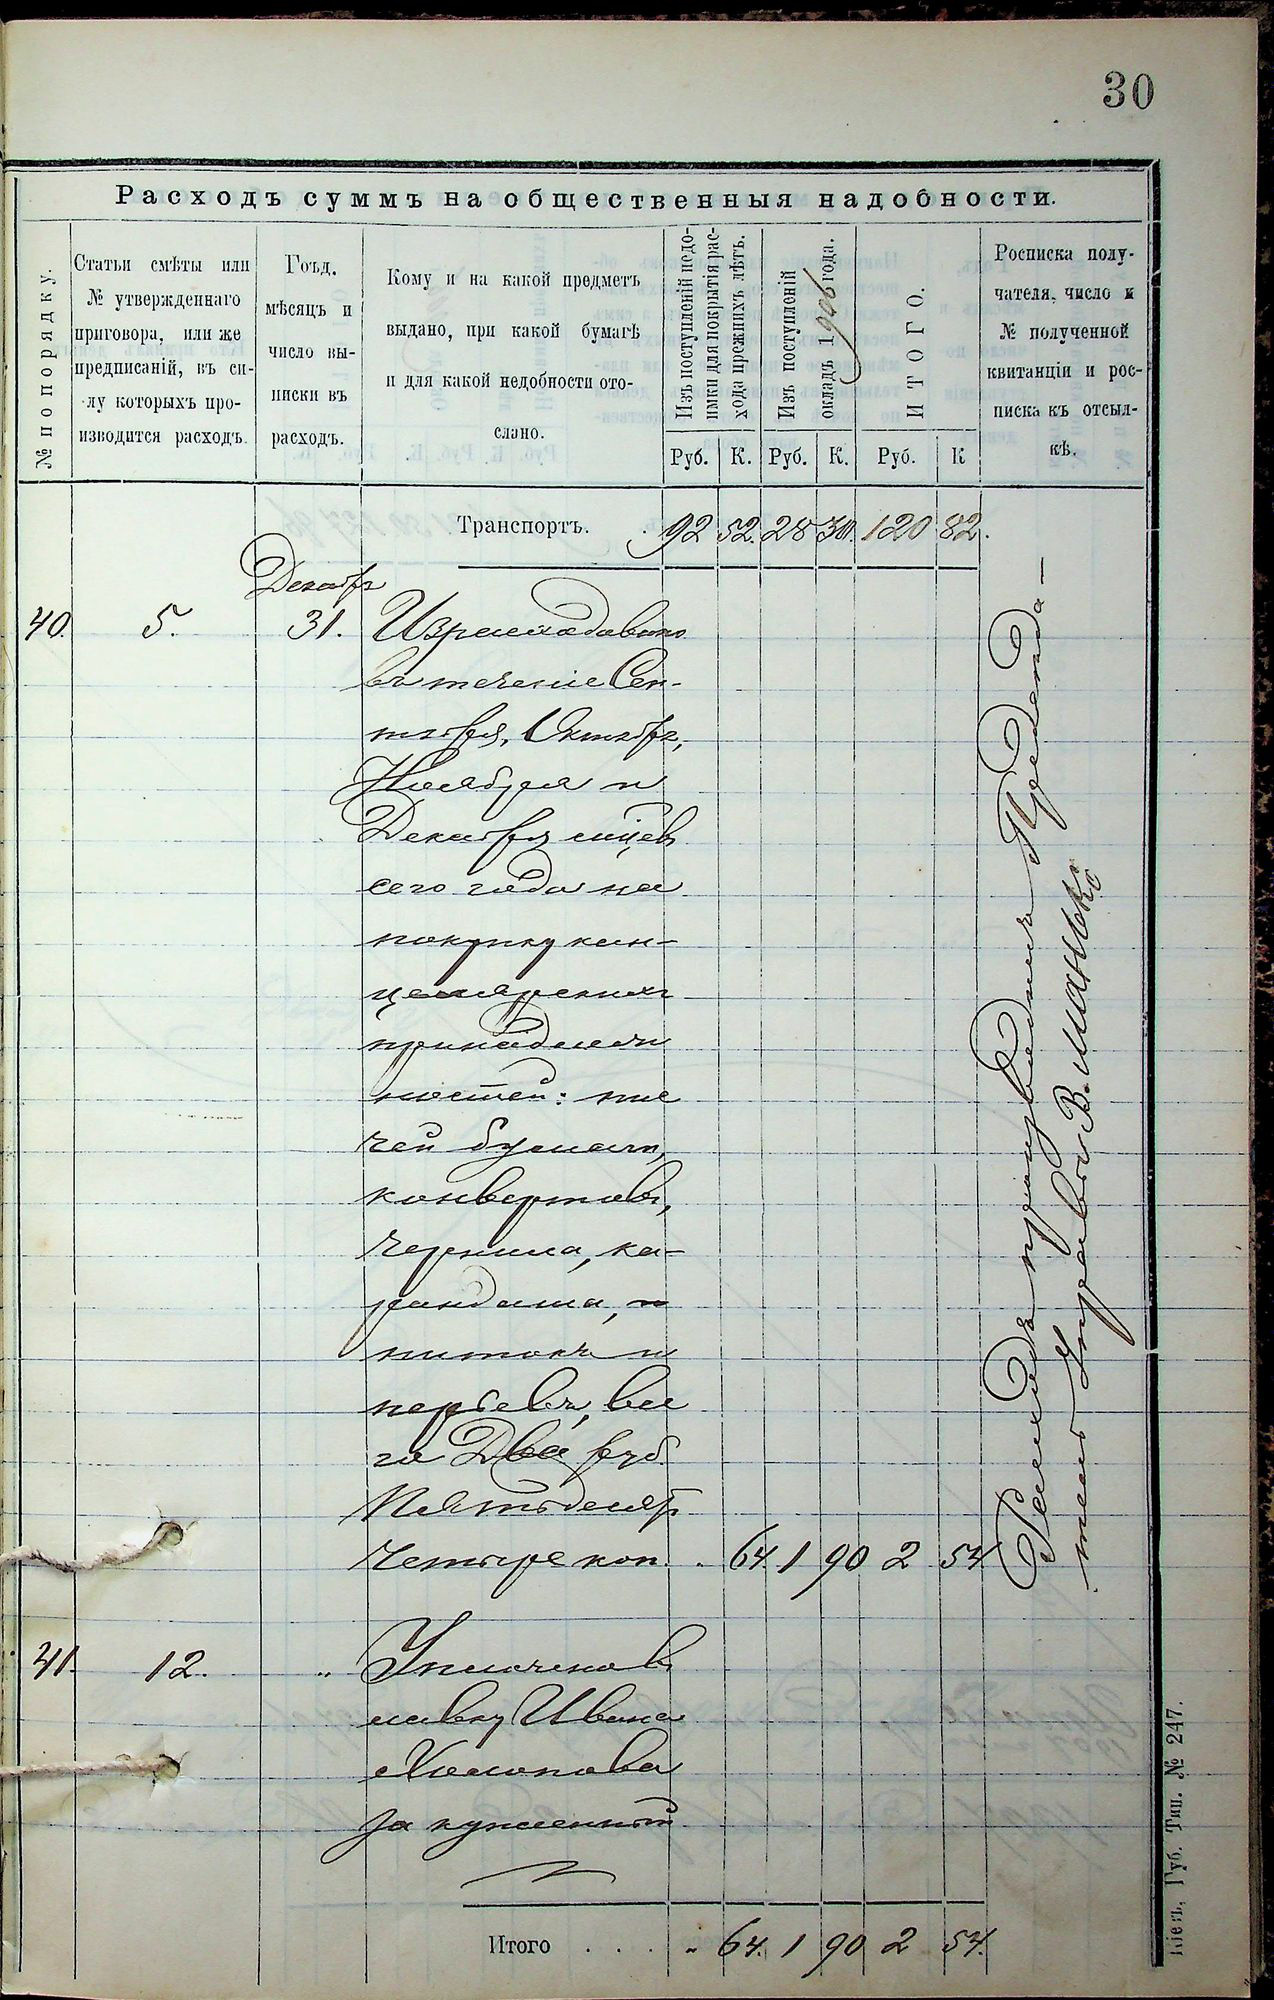 30
Расходъ суммъ на общественныя надобности.
№ по порядку.
Статьи смѣты или
№ утвержденнаго
приговора, или же
предписаній, въ си-
лу которыхъ про-
изводится расходъ.
Гоъд.
мѣсяцъ и
число вы-
писки въ
расходъ.
Кому и на какой предметъ
выдано, при какой бумагѣ
и для какой недобности ото-
слано.
Изъ поступленій недо-
имки для покрытія рас-
хода прежнихъ лѣтъ.
Изъ поступленій
окладъ 1906 года.
ИТОГО.
Росписка полу-
чателя, число и
№ полученной
квитанціи и рос-
писка къ отсыл-
кѣ.
Руб. К. Руб. К. Руб. К
Транспортъ. 92 52. 28 30. 120 82.
Декабр
40. 5. 31. Израсходовано
въ теченіе Сен-
тября, Октября,
Ноября и
Декабря м-цевъ
сего года на
покупку кан-
целярскихъ
принадлеж
ностей: пис
чей бумаги,
конвертовъ,
чернила, ка-
рандаша,
нитокъ и
перьевъ, все
го Два руб.
Пятьдесят
четыре коп. . 64. 1 90 2 54
41. 12. " Уплочено въ
лавку Ивана
Холопова
за купленный
Итого . . . . " 64. 1 90 2 54.
Расходъ произведенъ Председа-
тель Управы В. Манько
Кіевъ, Губ. Тип. № 247.